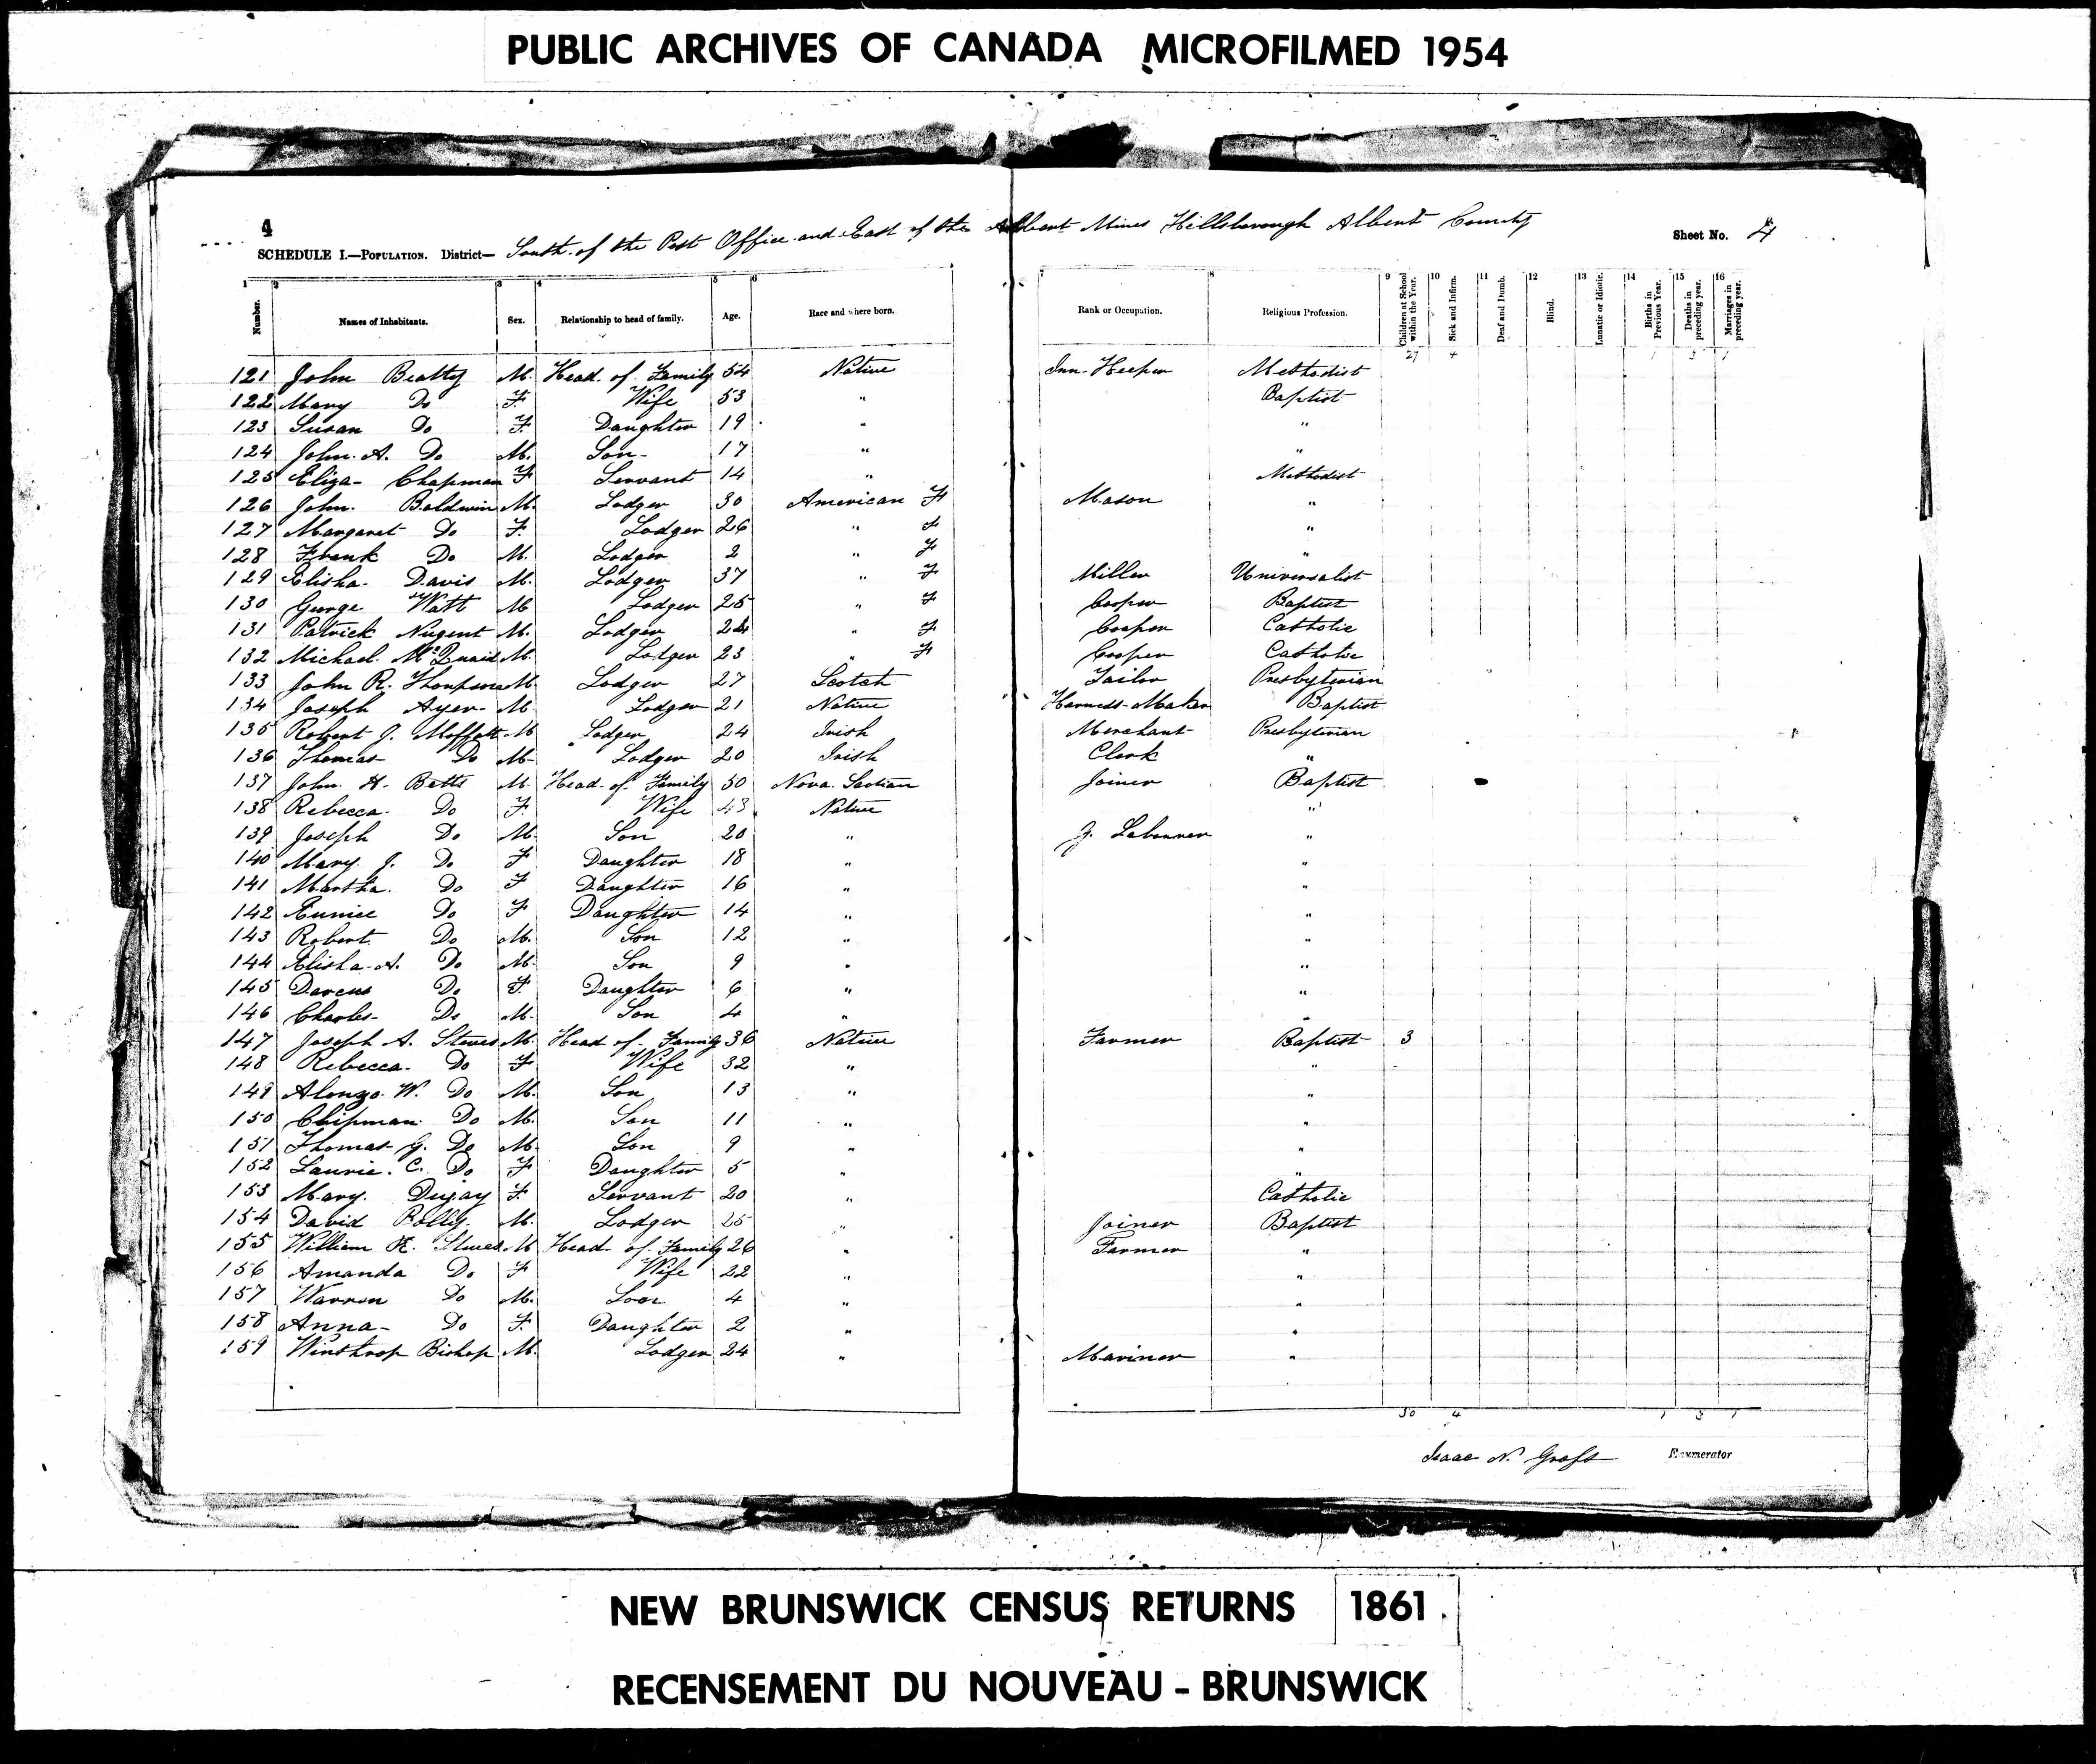 PUBLIC ARCHIVES OF CANADA MICROFILMED 1954
4
SCHEDULE I.—POPULATION. District— South of the Post Office and East of the Albert Mines Hillsborough Albert County Sheet No. 4
1 2 3 4 5 6 7 8 9 10 11 12 13 14 15 16
Number. Names of Inhabitants. Sex. Relationship to head of family. Age. Race and where born. Rank or Occupation. Religious Profession. Children at School within the Year. Sick and Infirm. Deaf and Dumb. Blind. Lunatic or Idiotic. Births in Previous Year. Deaths in preceding year. Marriages in preceding year.
27 4 1 3 1
121 John Beatty M. Head of Family 54 Native Inn-Keeper Methodist
122 Mary Do F. Wife 53 " Baptist
123 Susan Do F. Daughter 19 " "
124 John A. Do M. Son 17 " "
125 Eliza Chapman F Servant 14 " Methodist
126 John Baldwin M. Lodger 30 American F Mason "
127 Margaret Do F. Lodger 26 " F "
128 Frank Do M. Lodger 2 " F "
129 Elisha Davis M. Lodger 37 " F Miller Universalist
130 George Watt M Lodger 25 " F Cooper Baptist
131 Patrick Nugent M. Lodger 24 " F Cooper Catholic
132 Michael McQuaid M. Lodger 23 " F Cooper Catholic
133 John R. Thompson M. Lodger 27 Scotch Tailor Presbyterian
134 Joseph Ayer M. Lodger 21 Native Harness-Maker Baptist
135 Robert J. Moffatt M Lodger 24 Irish Merchant Presbyterian
136 Thomas Do M. Lodger 20 Irish Clerk "
137 John H. Betts M. Head of Family 50 Nova Scotian Joiner Baptist
138 Rebecca Do F. Wife 43 Native "
139 Joseph Do M. Son 20 " J. Labourer "
140 Mary J. Do F Daughter 18 " "
141 Martha Do F Daughter 16 " "
142 Eunice Do F Daughter 14 " "
143 Robert Do M. Son 12 " "
144 Elisha A. Do M. Son 9 " "
145 Darcus Do F Daughter 6 " "
146 Charles Do M. Son 4 " "
147 Joseph A. Steves M. Head of Family 36 Native Farmer Baptist 3
148 Rebecca Do F Wife 32 " "
149 Alonzo W. Do M. Son 13 " "
150 Chipman Do M. Son 11 " "
151 Thomas G. Do M. Son 9 " "
152 Laurie C. Do F Daughter 5 " "
153 Mary F. Servant 20 " Catholic
154 David Polly M. Lodger 25 " Joiner Baptist
155 William Steves M Head of Family 26 " Farmer "
156 Amanda Do F Wife 22 " "
157 Warren Do M. Son 4 " "
158 Anna Do F. Daughter 2 " "
159 Winthrop Bishop M. Lodger 24 " Mariner "
30 4 1 3 1
Isaac N. Enumerator
NEW BRUNSWICK CENSUS RETURNS 1861
RECENSEMENT DU NOUVEAU - BRUNSWICK